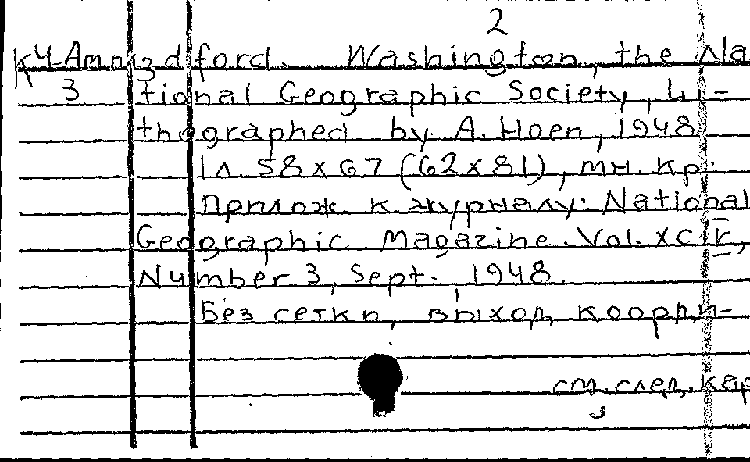 2
K4-Amn3d ford. Washington, the Na
3 tional Geographic Society, Li-
thographed by A. Hoen, 1948
1л. 58x67 (62x81), мн. кр.
Прилож. к журналу: National
Geographic Magazine. Vol. XCIV,
Number 3, Sept., 1948.
Без сетки, выход, коорди-
см. след. кар